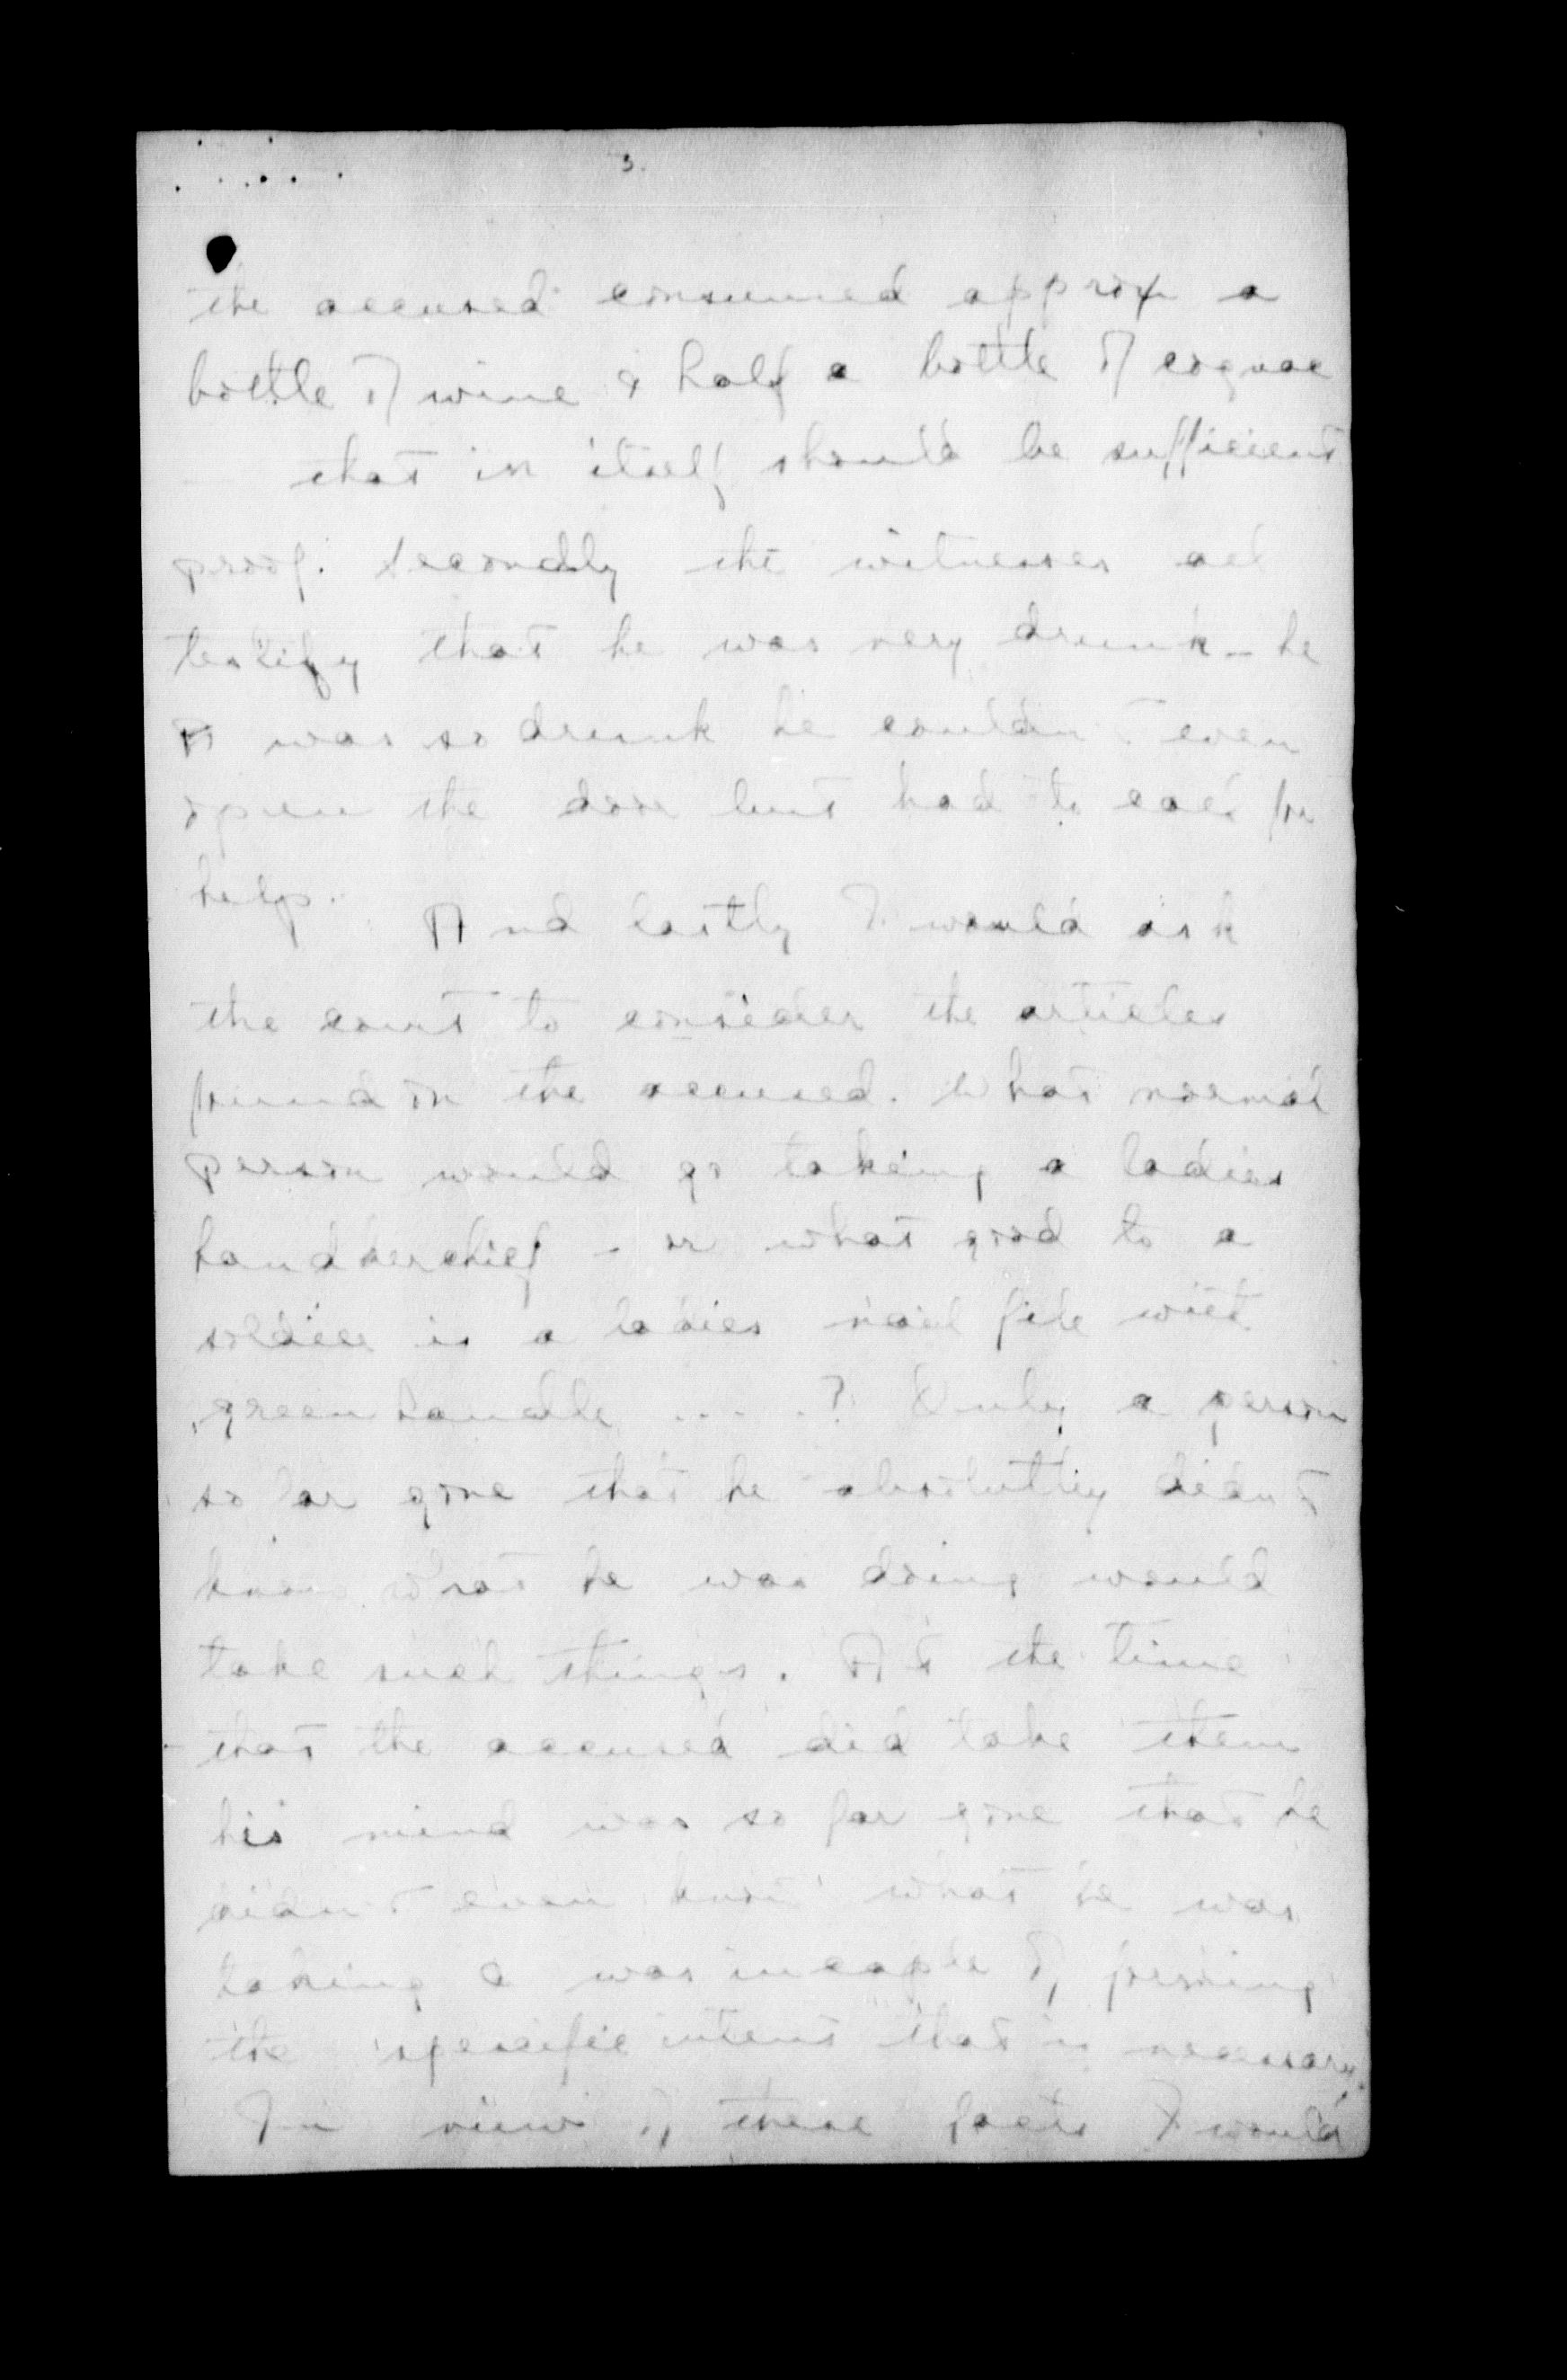 3.
the accused consumed approx a
bottle of wine & half a bottle of cognac
— that in itself should be sufficient
proof. Secondly the witnesses all
testify that he was very drunk – he
was so drunk he couldn't even
open the door but had to call for
help.
And lastly I would ask
the court to consider the articles
found on the accused. What normal
person would go taking a ladies
handkerchief – or what good to a
soldier is a ladies nail file with
green handle ....? Only a person
so far gone that he absolutley didn't
know what he was doing would
take such things. At the time
that the accused did take them
his mind was so far gone that he
didn't even know what he was
taking & was incapable of forming
the specific intent that is necessary.
In view of these facts I would